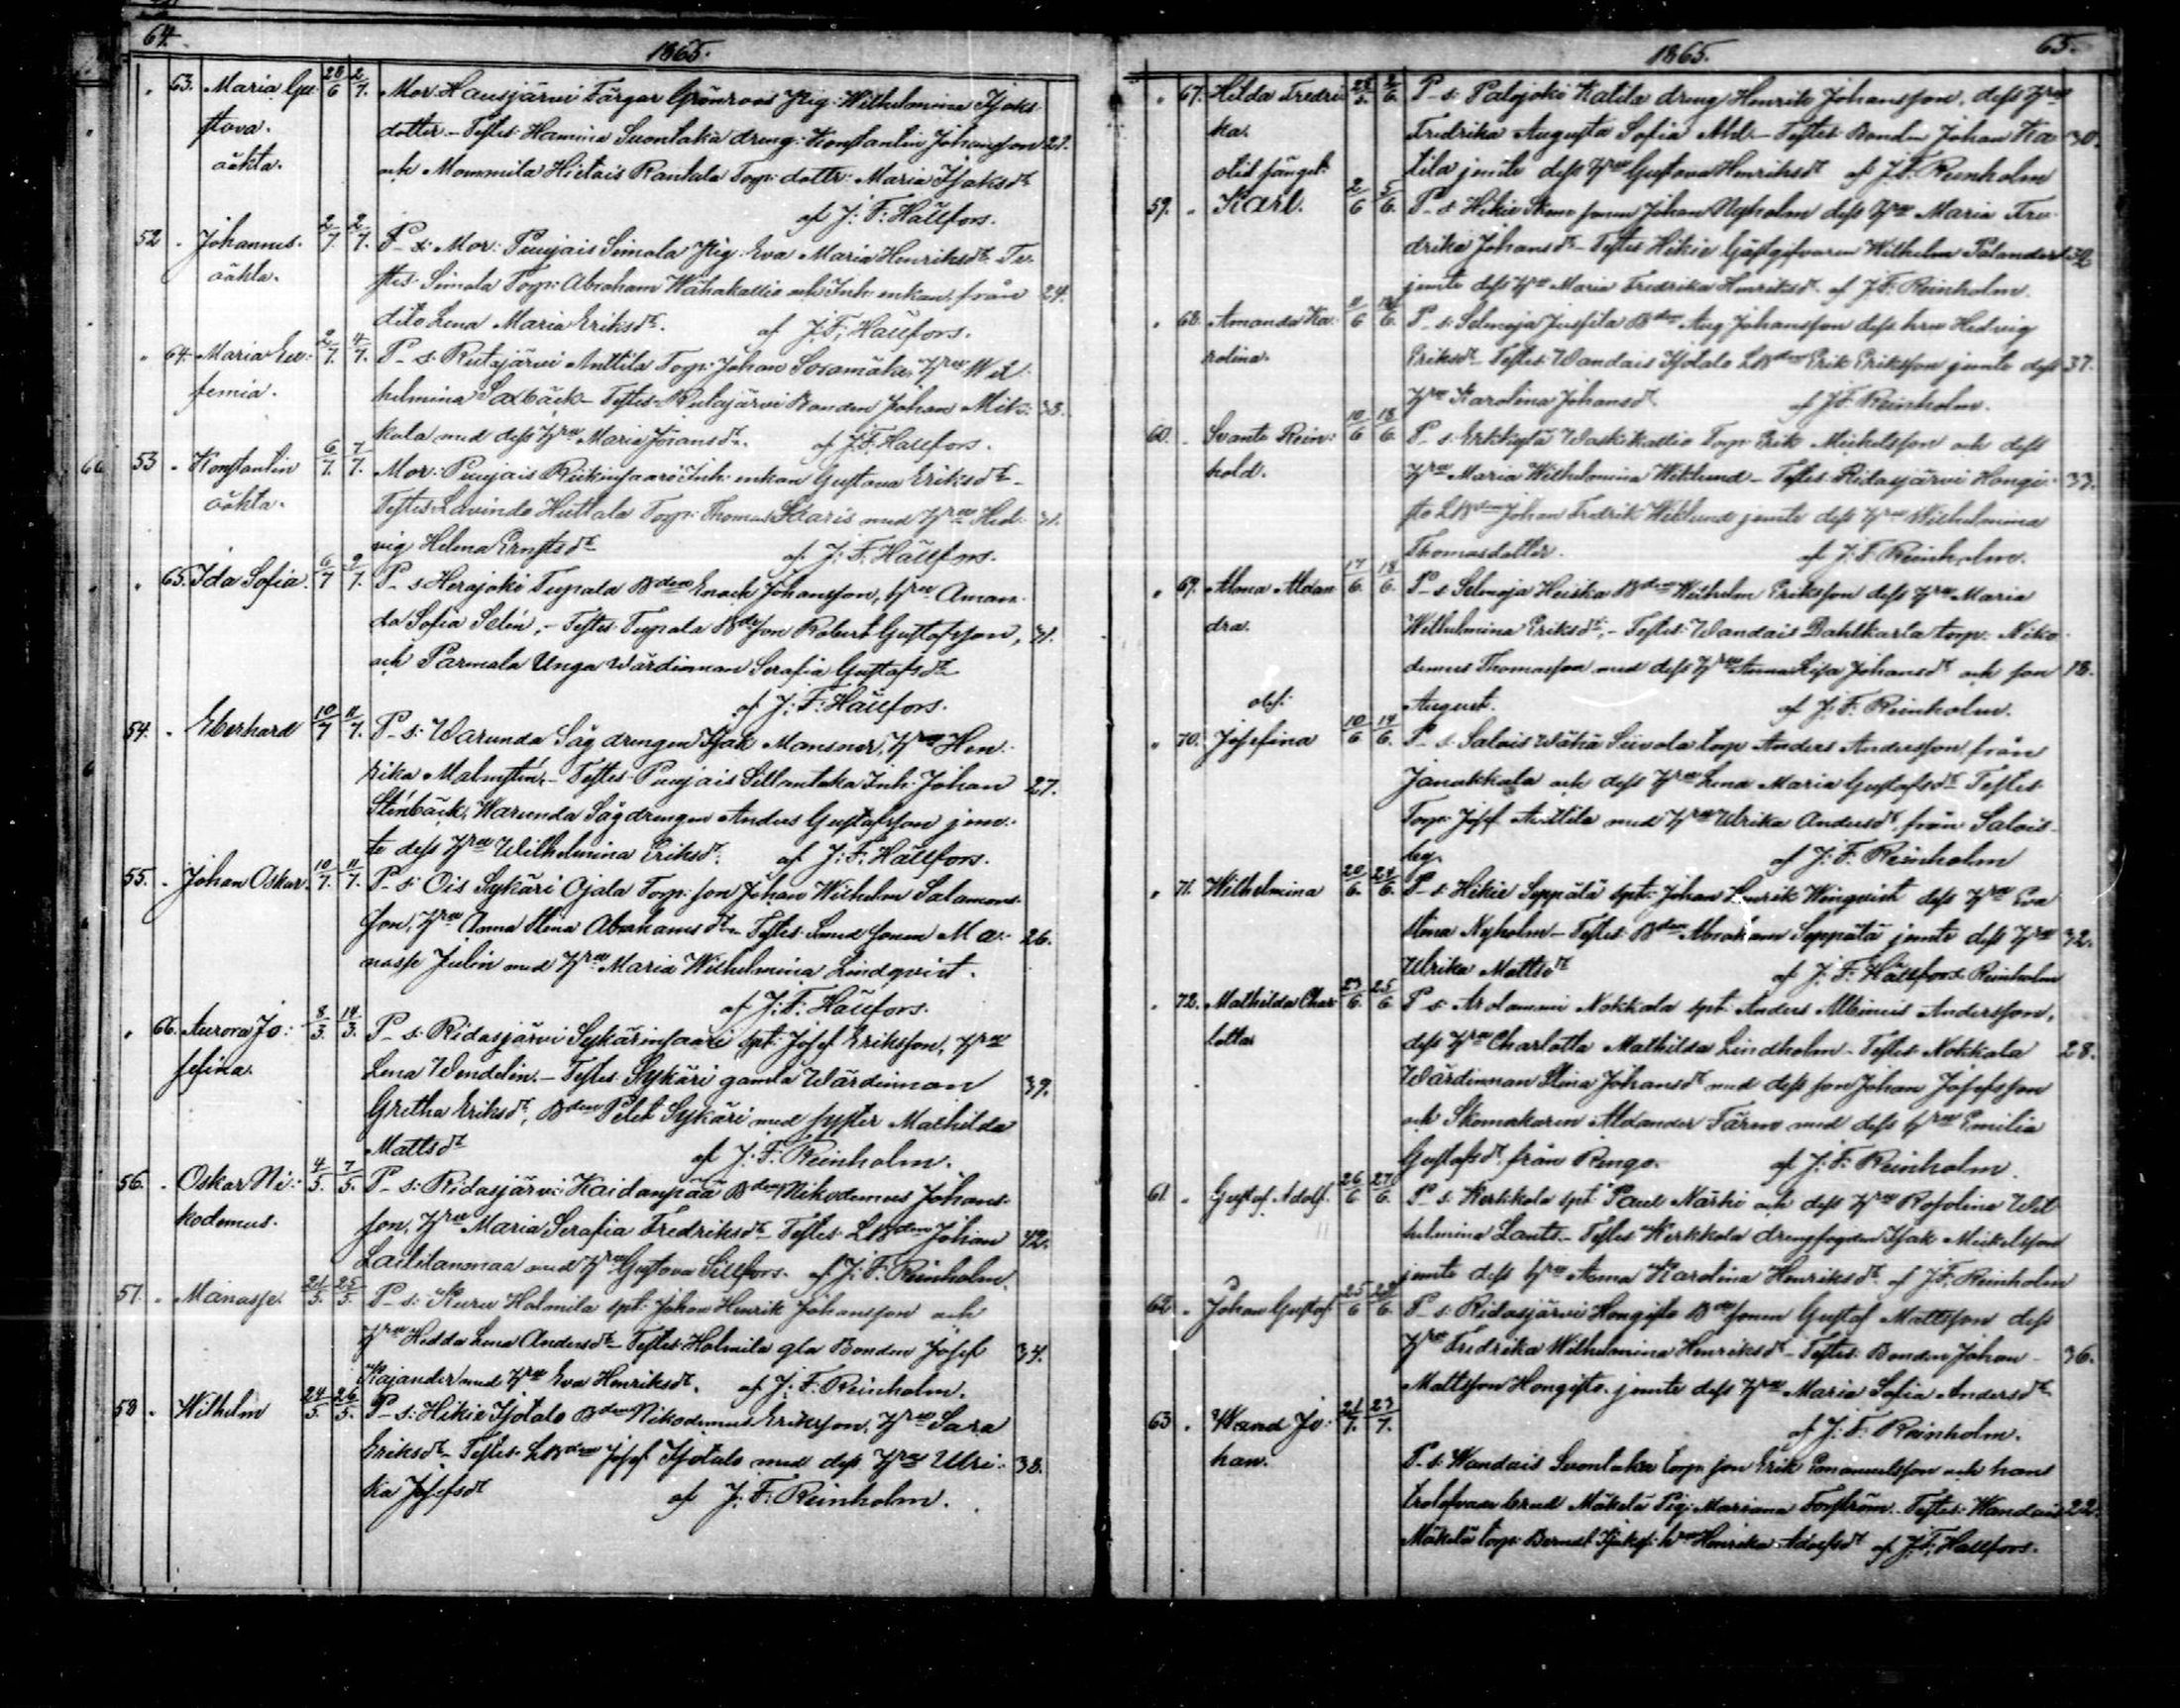 64.
1865.
63. Maria Gu- 28/6 2/7. Mor: Hausjärvi Färgar Grönroos Pig: Wilhelmina Isaks-
stava. dotter – Testes: Hamina Suontaka dreng: Konstantin Johansson 21.
oäkta. och Mommila Hietais Rantala Torp: dottr: Maria Isaksdr
af J: F: Hällfors.
52 Johannes. 2/7 2/7. P–s: Mor: Puujais Simola Pig: Eva Maria Henriksdr Te-
oäkta. stes: Simola Torp: Abraham Wähäkallio och Inh: enkan från 24.
dito Lena Maria Eriksdr. af J: F: Hällfors.
64. Maria Eu- 2/7 4/7. P–s: Rutajärvi Anttila Torp: Johan Soramäki, Hru Wil-
femia. helmina Saxbäck – Testes: Rutajärvi Bonden Johan Mik- 38.
kola med dess Hru Maria Göransdr. af J: F: Hällfors.
53 Konstantin 6/7. 7/7. Mor: Puujais Riikinsaari Inh: enkan Gustava Eriksdr –
oäkta. Testes: Lavinto Huttala Torp: Thomas Skaris med Hru Hed- 31.
vig Helena Ernstsdr af J: F: Hällfors.
65. Ida Sofia. 6/7 9/7. P–s: Herajoki Tupala Bden Enock Johansson, Hru Aman-
da Sofia Selin, – Testes: Tupala Bdeson Robert Gustafsson, 31.
och Parmala Unga Wärdinnan Serafia Gustafsdr
af J: F: Hällfors.
54. Eberhard 10/7 11/7. P–s: Warunda Såg drengen Isak Mansner, Hru Hen-
rika Malmstén, – Testes: Puujais Sillantaka Inh: Johan 27.
Stenbäck, Warunda Sågdrengen Anders Gustafsson jem-
te dess Hru Wilhelmina Eriksdr. af J: F: Hällfors.
55. Johan Oskar. 10/7. 11/7. P–s: Ois Sykäri Ojala Torp: son Johan Wilhelm Salomons-
son, Hru Anna Stina Abrahamsdr – Testes: Smed sonen Ma- 26.
nasse Julin med Hru Maria Wilhelmina Lindqvist.
af J: F: Hällfors.
66. Aurora Jo- 8/3. 14/3. P–s: Ridasjärvi Sykärinsaari spt: Josef Eriksson, Hru
sefina. Lena Wendelin. – Testes: Sykäri gamla Wärdinnan 39.
Gretha Eriksdr, Bden Petter Sykäri med syster Mathilda
Mattsdr af J: F: Reinholm.
56. Oskar Ni- 4/5. 7/5. P–s: Ridasjärvi Kaidanpää Bden Nikodemus Johans-
kodemus. son, Hru Maria Serafia Fredriksdr – Testes: LBden Johan 42.
Laitilanmaa med Hru Gustava Sillfors. af J: F: Reinholm.
57. Manasse. 21/5. 25/5. P–s: Kuru Holmila spt: Johan Henrik Johansson och
Hru Hedda Lena Andersdr – Testes: Holmila gla Bonden Josef 34.
Kajander med Hru Eva Henriksdr. af J: F: Reinholm.
58 Wilhelm 24/5. 26/5. P–s: Hikie Isotalo Bden Nikodemus Eriksson, Hru Sara
Eriksdr – Testes: LBden Josef Isotalo med dess Hru Ulri- 38.
ka Josefsdr af J: F: Reinholm.
65.
1865.
67. Hilda Fredri- 28/5. 2/6. P–s: Palojoki Katila dreng Henrik Johansson, dess Hru
ka. Fredrika Augusta Sofia Ahl. – Testes: Bonden Johan Ka- 30.
tila jemte dess Hru Gustava Henriksdr af J: F: Reinholm
59. Karl. 2/6 5/6. P–s: Hikie Skom sonen Johan Nyholm dess Hru Maria Fre-
drika Johansdr – Testes: Hikie Gästgifvaren Wilhelm Palander 32
jemte dess Hru Maria Fredrika Henriksdr. af J: F: Reinholm.
68. Amanda Ka- 11/6 P–s: Selmoja Jussila Bden Aug Johansson dess hru Hedvig
rolina. Eriksdr – Testes: Wandais Isotalo LBden Erik Eriksson jemte dess 37.
Hru Karolina Johansdr. af J: F: Reinholm.
60. Svante Rein- 10/6 18/6. P–s: Erkkylä Waskikallio Torp: Erik Mickelsson och dess
hold. Hru Maria Wilhelmina Wiklund – Testes: Ridasjärvi Hongi- 33.
sto LBden Johan Fredrik Wiklund jemte dess Hru Wilhelmina
Thomasdotter. af J: F: Reinholm.
69. Alma Alexan- 17/6. 18/6. P–s: Selmoja Heiska Bden Wilhelm Eriksson dess Hru Maria
dra. Wilhelmina Eriksdr, – Testes: Wandais Dahlkarla torp: Niko-
demus Thomasson med dess Hru Anna Lisa Johansdr och son 18.
August. af J: F: Reinholm.
70. Josefina 10/6 14/6. P–s: Salois Wähä Siivola torp: Anders Andersson, från
Janakkala och dess Hru Lena Maria Gustafsdr Testes:
Torp: Josef Anttila med Hru Ulrika Andersdr. från Salois-
by. af J: F: Reinholm
71. Wilhelmina 20/6. 24/6. P–s: Hikie Seppälä spt: Johan Henrik Winqvist dess Hru Eva
Stina Nyholm – Testes: Bden Abraham Seppälä jemte dess Hru 32.
Ulrika Mattsdr af J: F: Hällfors Reinholm
72. Mathilda Char- 23/6. 25/6 P–s: Arolammi Nokkala spt: Anders Albinus Andersson,
lotta dess Hru Charlotta Mathilda Lindholm – Testes: Nokkala 28.
Wärdinnan Stina Johansdr med dess son Johan Josefsson
och Skomakaren Alexander Färm med dess hru Emilia
Gustafsdr. från Renga. af J: F: Reinholm.
61. Gustaf Adolf. 26/6 27/6. P–s: Kerkkola spt Paul Närhi och dess Hru Rosolina Wil-
helmina Lantz – Testes: Kerkkola drengfogden Isak Mickelsson
jemte dess hru Anna Karolina Henriksdr. af J: F: Reinholm
62. Johan Gustaf 25/6 P–s: Ridasjärvi Hongisto Bdesonen Gustaf Mattsson dess
Hru Fredrika Wilhelmina Henriksdr – Testes: Bonden Johan 36.
Mattsson Hongisto jemte dess Hru Maria Sofia Andersdr
63. Jo- 21/7. 23/7. af J: F: Reinholm.
han. P–s: Wandais Suontaka torp: son Erik Emanuelsson och hans
trolofvade brud Mäkelä Pig: Mariana Forström. Testes: Wandais 22.
Mäkelä torp: Berndt Isakss: hru Henrika Adolfsdr af J: F: Hällfors.